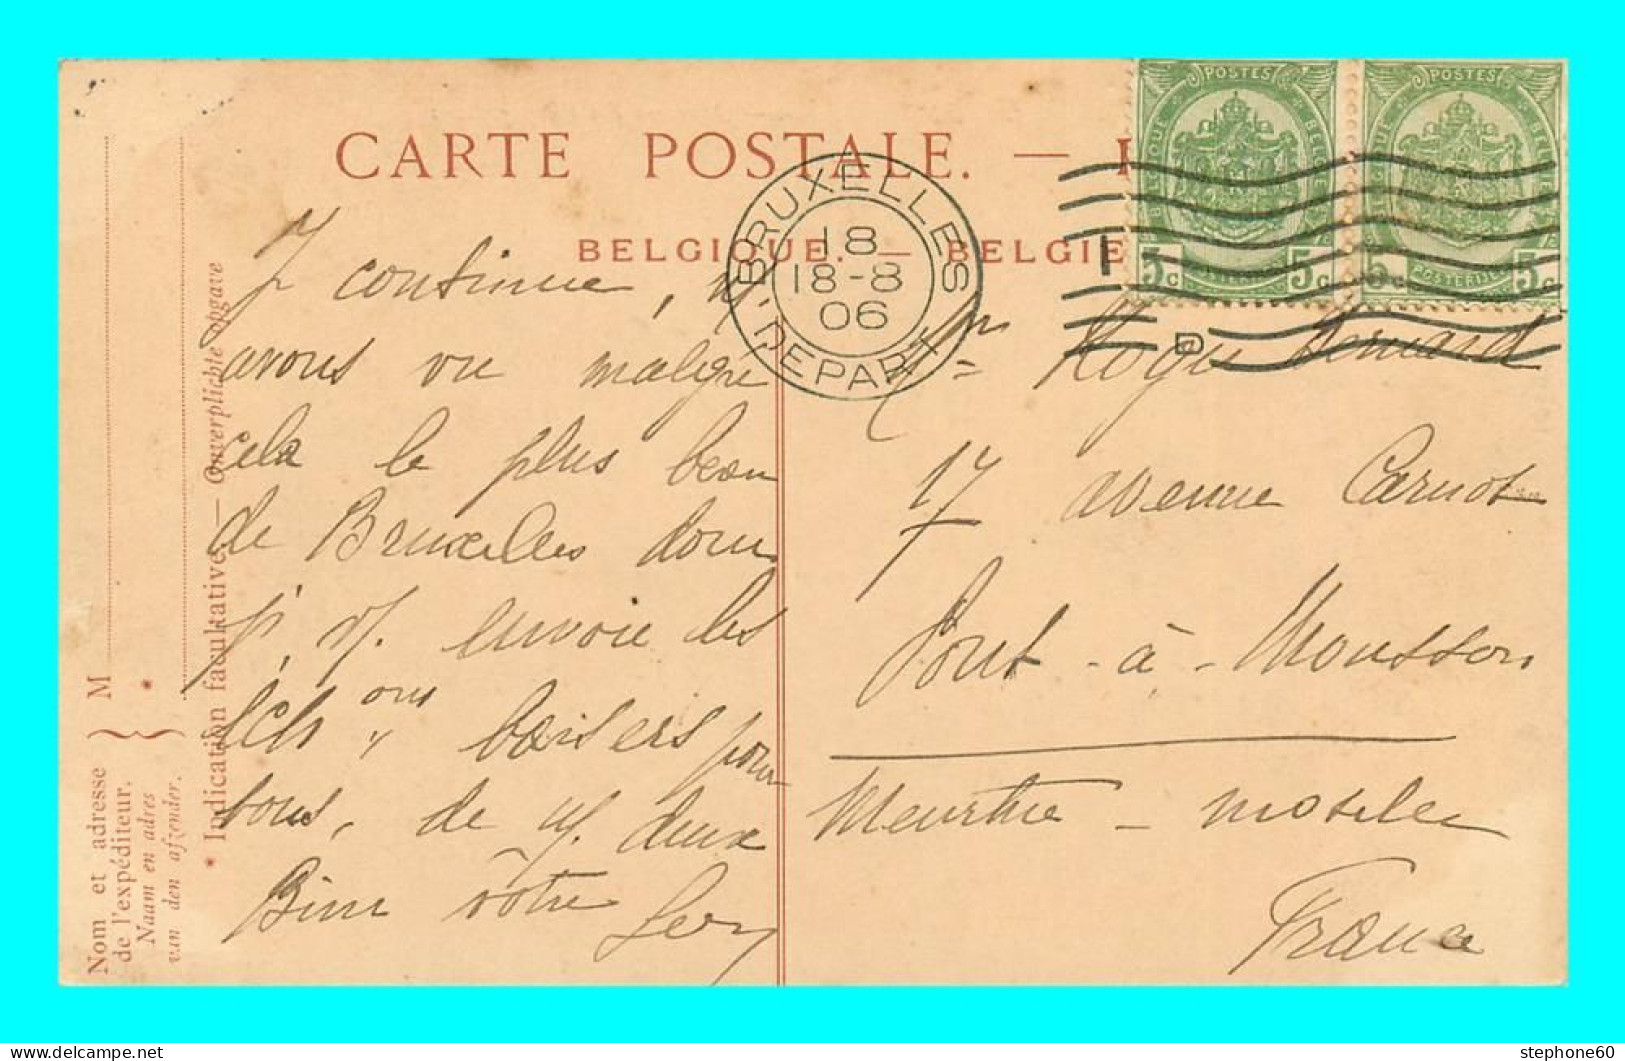 CARTE POSTALE. —
BELGIQUE. — BELGIE
BRUXELLES
18
18-8
06
DEPART
POSTES
BELGIQUE
5c
5c
POSTES
BELGIQUE
5c
POSTERIJEN
5c
Je continue,
avons vu malgré
cela le plus beau
de Bruxelles dont
j' envoie les
baisers pour
tous, de deux
Bien vôtre
Roger Bernard
17 avenue Carnot
Pont-à-Mousson
Meurthe-moselle
France
Nom et adresse
de l'expéditeur.
Naam en adres
van den afzender.
M
* Indication facultative. — Onverplichte opgave
stephone60